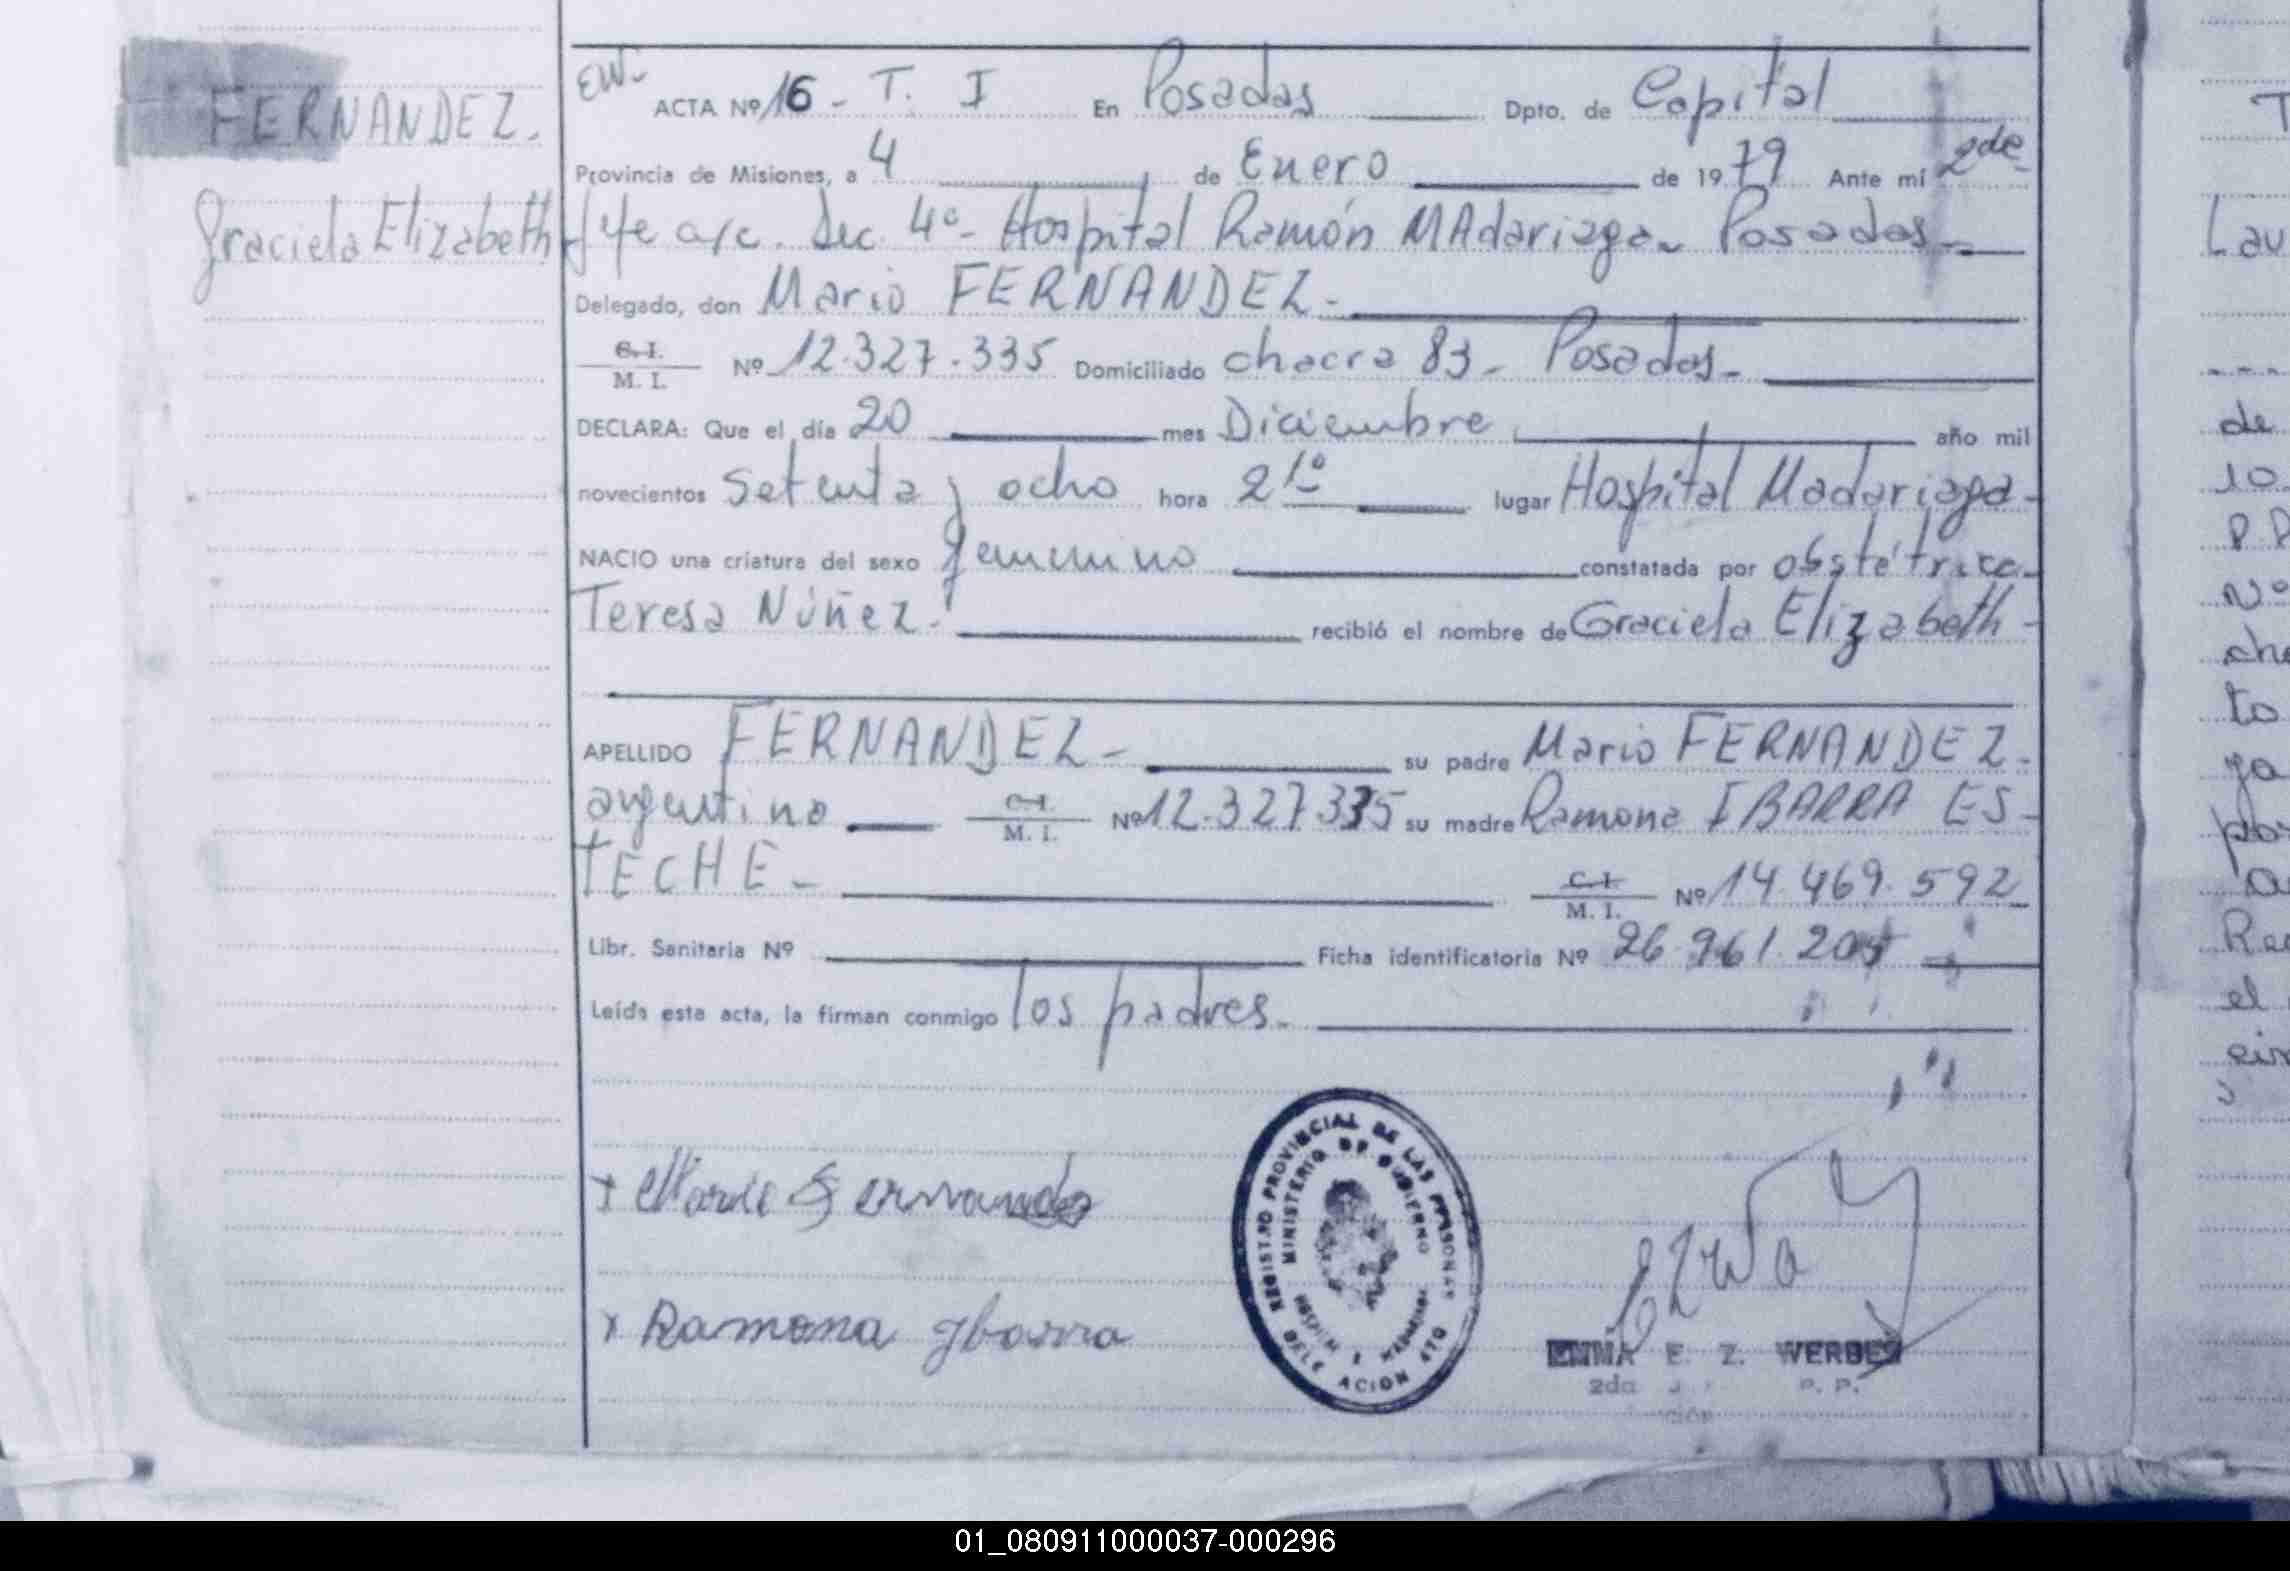 FERNANDEZ.
Graciela Elizabeth
EW.
ACTA Nº 16 - T. I En Posadas Dpto. de Capital
Provincia de Misiones, a 4 de Enero de 1979 Ante mí 2de
Jefe a/c. Sec. 4º - Hospital Ramón MAdariaga - Posadas -
Delegado, don Mario FERNANDEZ -
C. I.
M. I. Nº 12.327.335 Domiciliado chacra 83 - Posadas -
DECLARA: Que el día 20 mes Diciembre año mil
novecientos setenta y ocho hora 21º lugar Hospital Madariaga -
NACIO una criatura del sexo femenino constatada por obstétrica
Teresa Núñez - recibió el nombre de Graciela Elizabeth -
APELLIDO FERNANDEZ - su padre Mario FERNANDEZ -
argentino C. I. M. I. Nº 12.327.335 su madre Ramona IBARRA ES-
TECHE - C. I. M. I. Nº 14.469.592
Libr. Sanitaria Nº Ficha identificatoria Nº 26.961.205
Leída esta acta, la firman conmigo los padres -
Mario Fernandez
Ramona Ybarra
REGISTRO PROVINCIAL DE LAS PERSONAS
MINISTERIO DE GOBIERNO
DELEGACION 4TO
EMMA E. Z. WERBES
2da J. P. P.
Lau
de
10
Nº
che
to
ya
por
Re
el
01_080911000037-000296